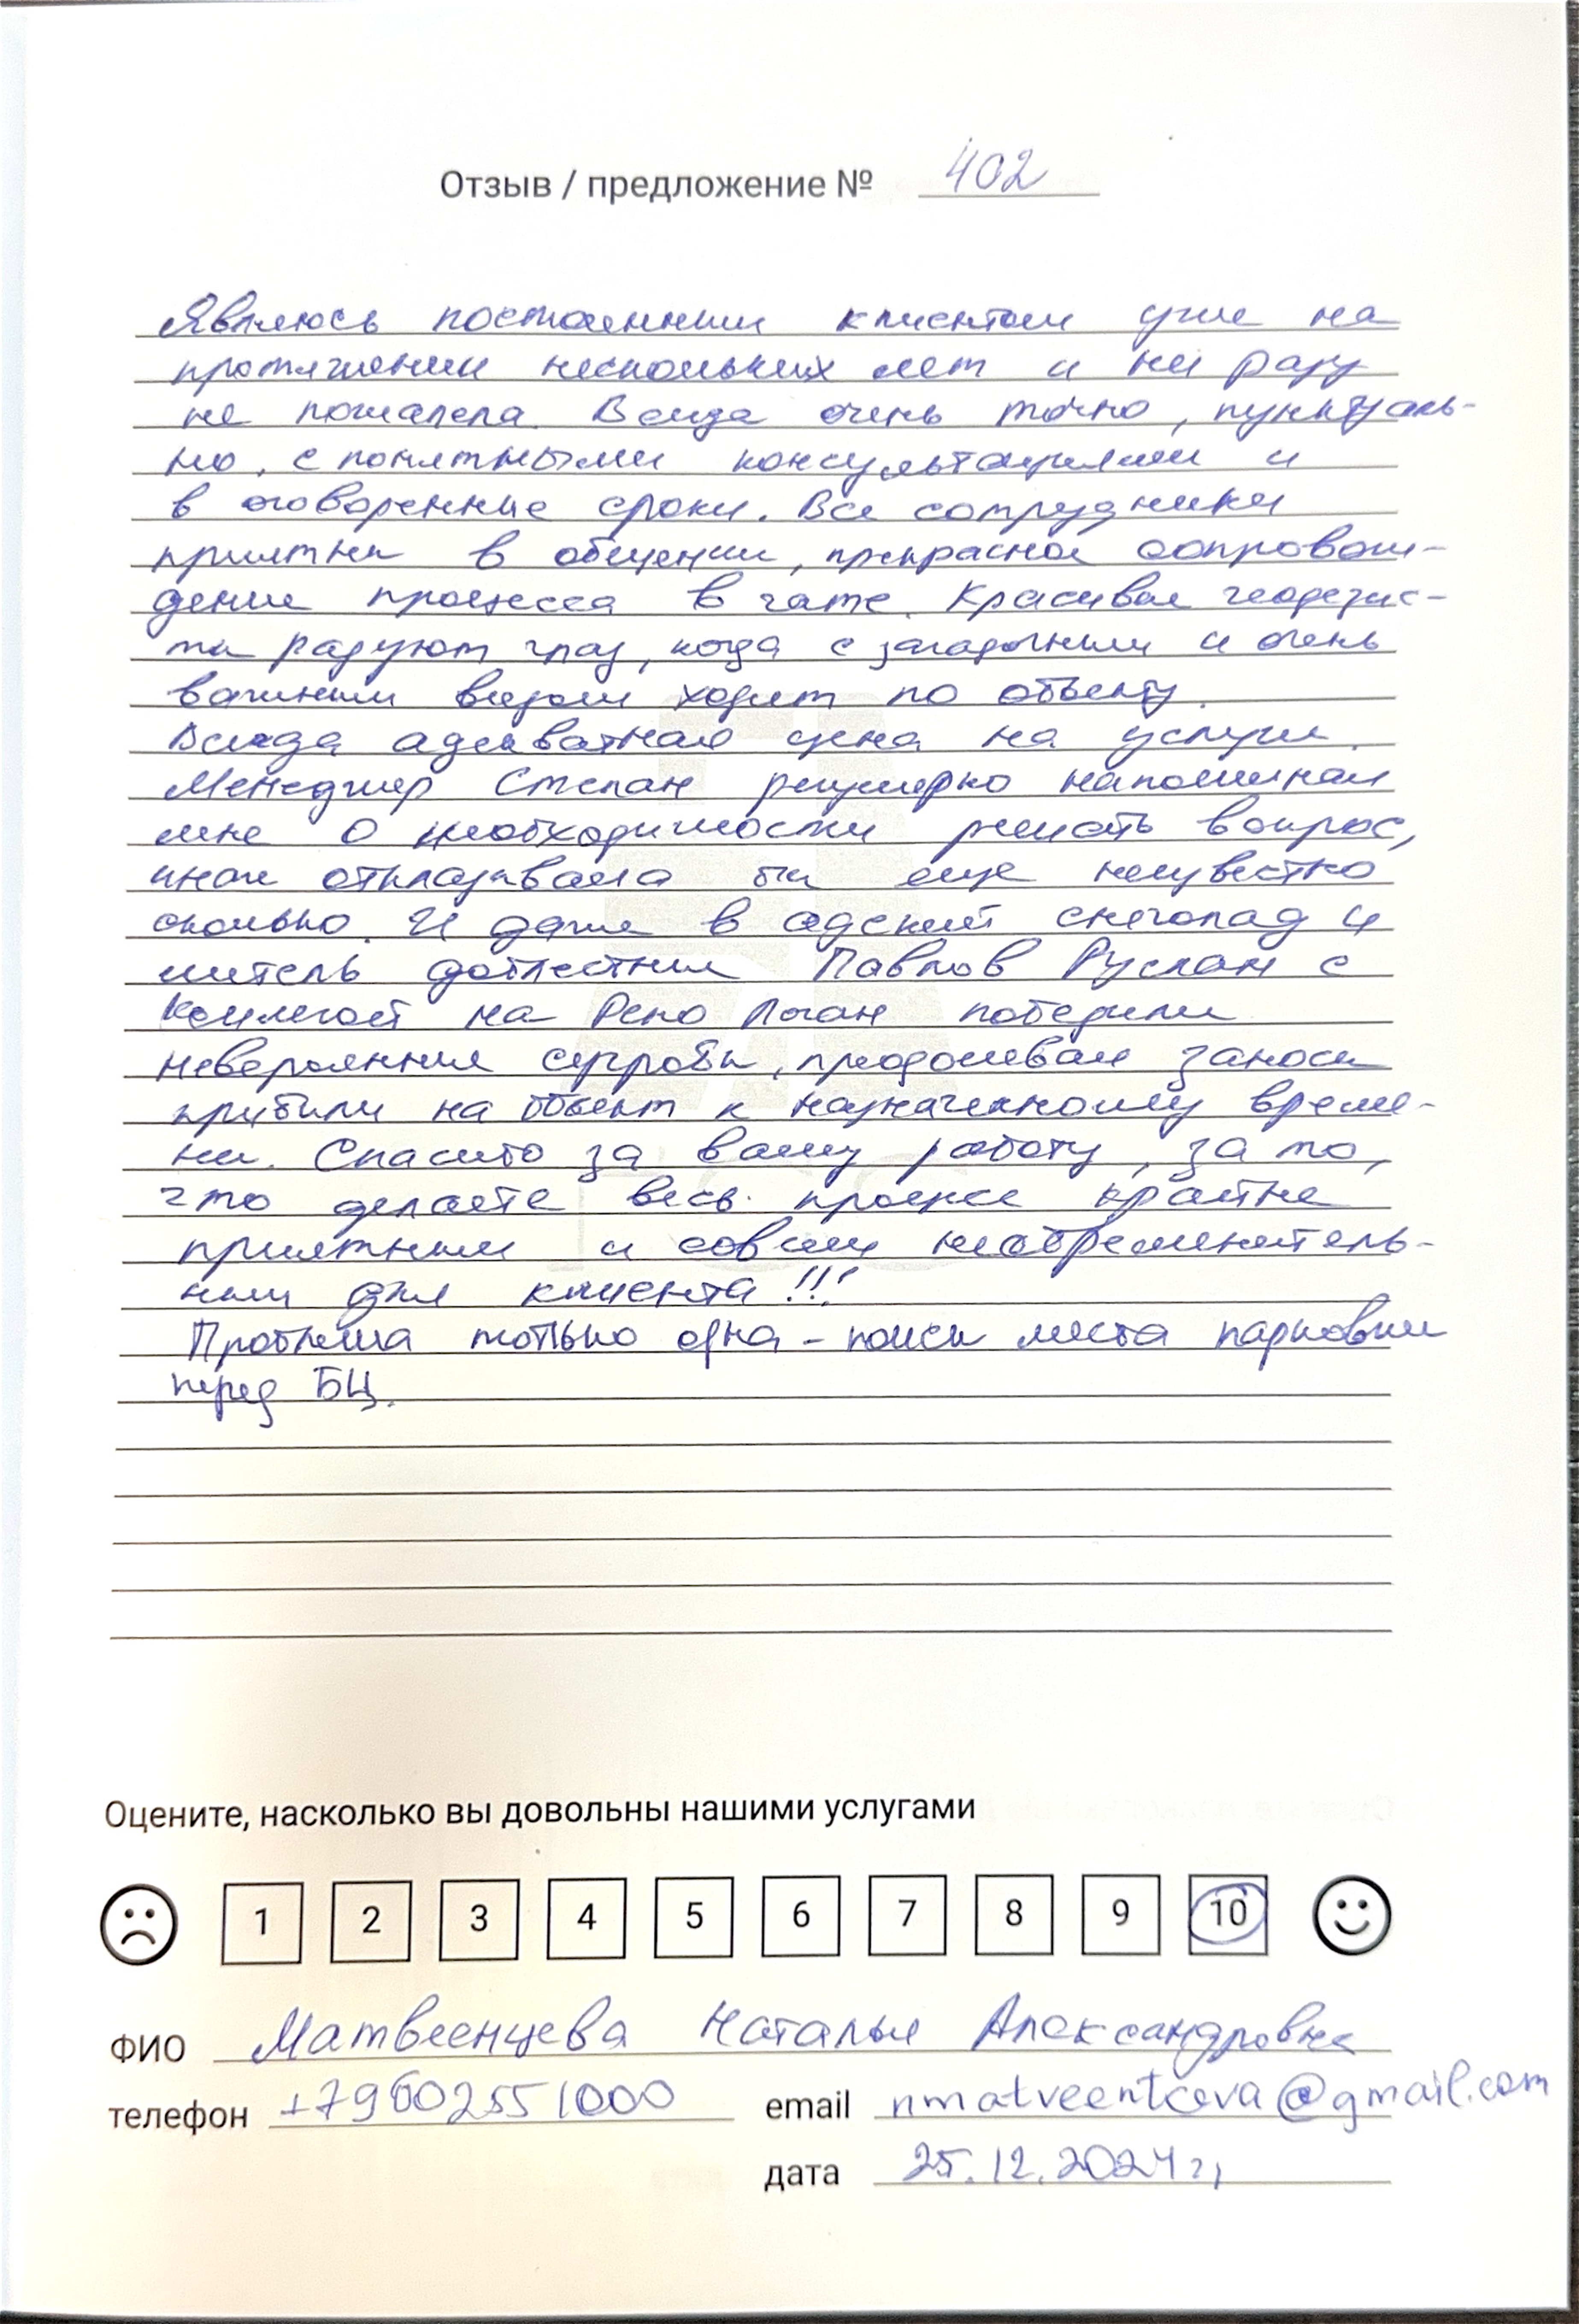 Отзыв / предложение № 402
Являюсь постоянным клиентом уже на
протяжении нескольких лет и ни разу
не пожалела. Всегда очень точно, пунктуаль-
но, с понятными консультациями и
в оговоренные сроки. Все сотрудники
приятны в общении, прекрасное сопровож-
дение процесса в чате. Красивые геодезис-
ты радуют глаз, когда с загадочным и очень
важным видом ходят по объекту.
Всегда адекватная цена на услуги.
Менеджер Степан регулярно напоминал
мне о необходимости решать вопрос,
иначе откладывала бы еще неизвестно
сколько. И даже в адский снегопад и
митель доблестные Павлов Руслан с
коллегой на Рено Логан победили
невероятные сугробы, преодолевали заносы
прибыли на объект к назначенному време-
ни. Спасибо за вашу работу, за то,
что делаете весь процесс крайне
приятным и совсем необременитель-
ным для клиента!!!
Проблема только одна - поиск места парковки
перед БЦ.
Оцените, насколько вы довольны нашими услугами
1 2 3 4 5 6 7 8 9 10
ФИО Матвеенцева Наталья Александровна
телефон +79602551000 email nmatveentceva@gmail.com
дата 25.12.2024г,